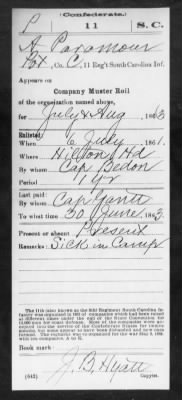 (Confederate.)
P 11 S.C.
A Paramour
Pvt, Co. C, 11 Reg't South Carolina Inf.
Appears on
Company Muster Roll
of the organization named above,
for July & Aug, 1863.
Enlisted:
When 6 July, 1861.
Where Hilton Hd
By whom Cap Bedon
Period 1 yr
Last paid:
By whom Cap Gantt
To what time 30 June, 1863.
Present or absent Present
Remarks: Sick in Camp
Book mark:
J. B. Hyatt
(642) Copyist.